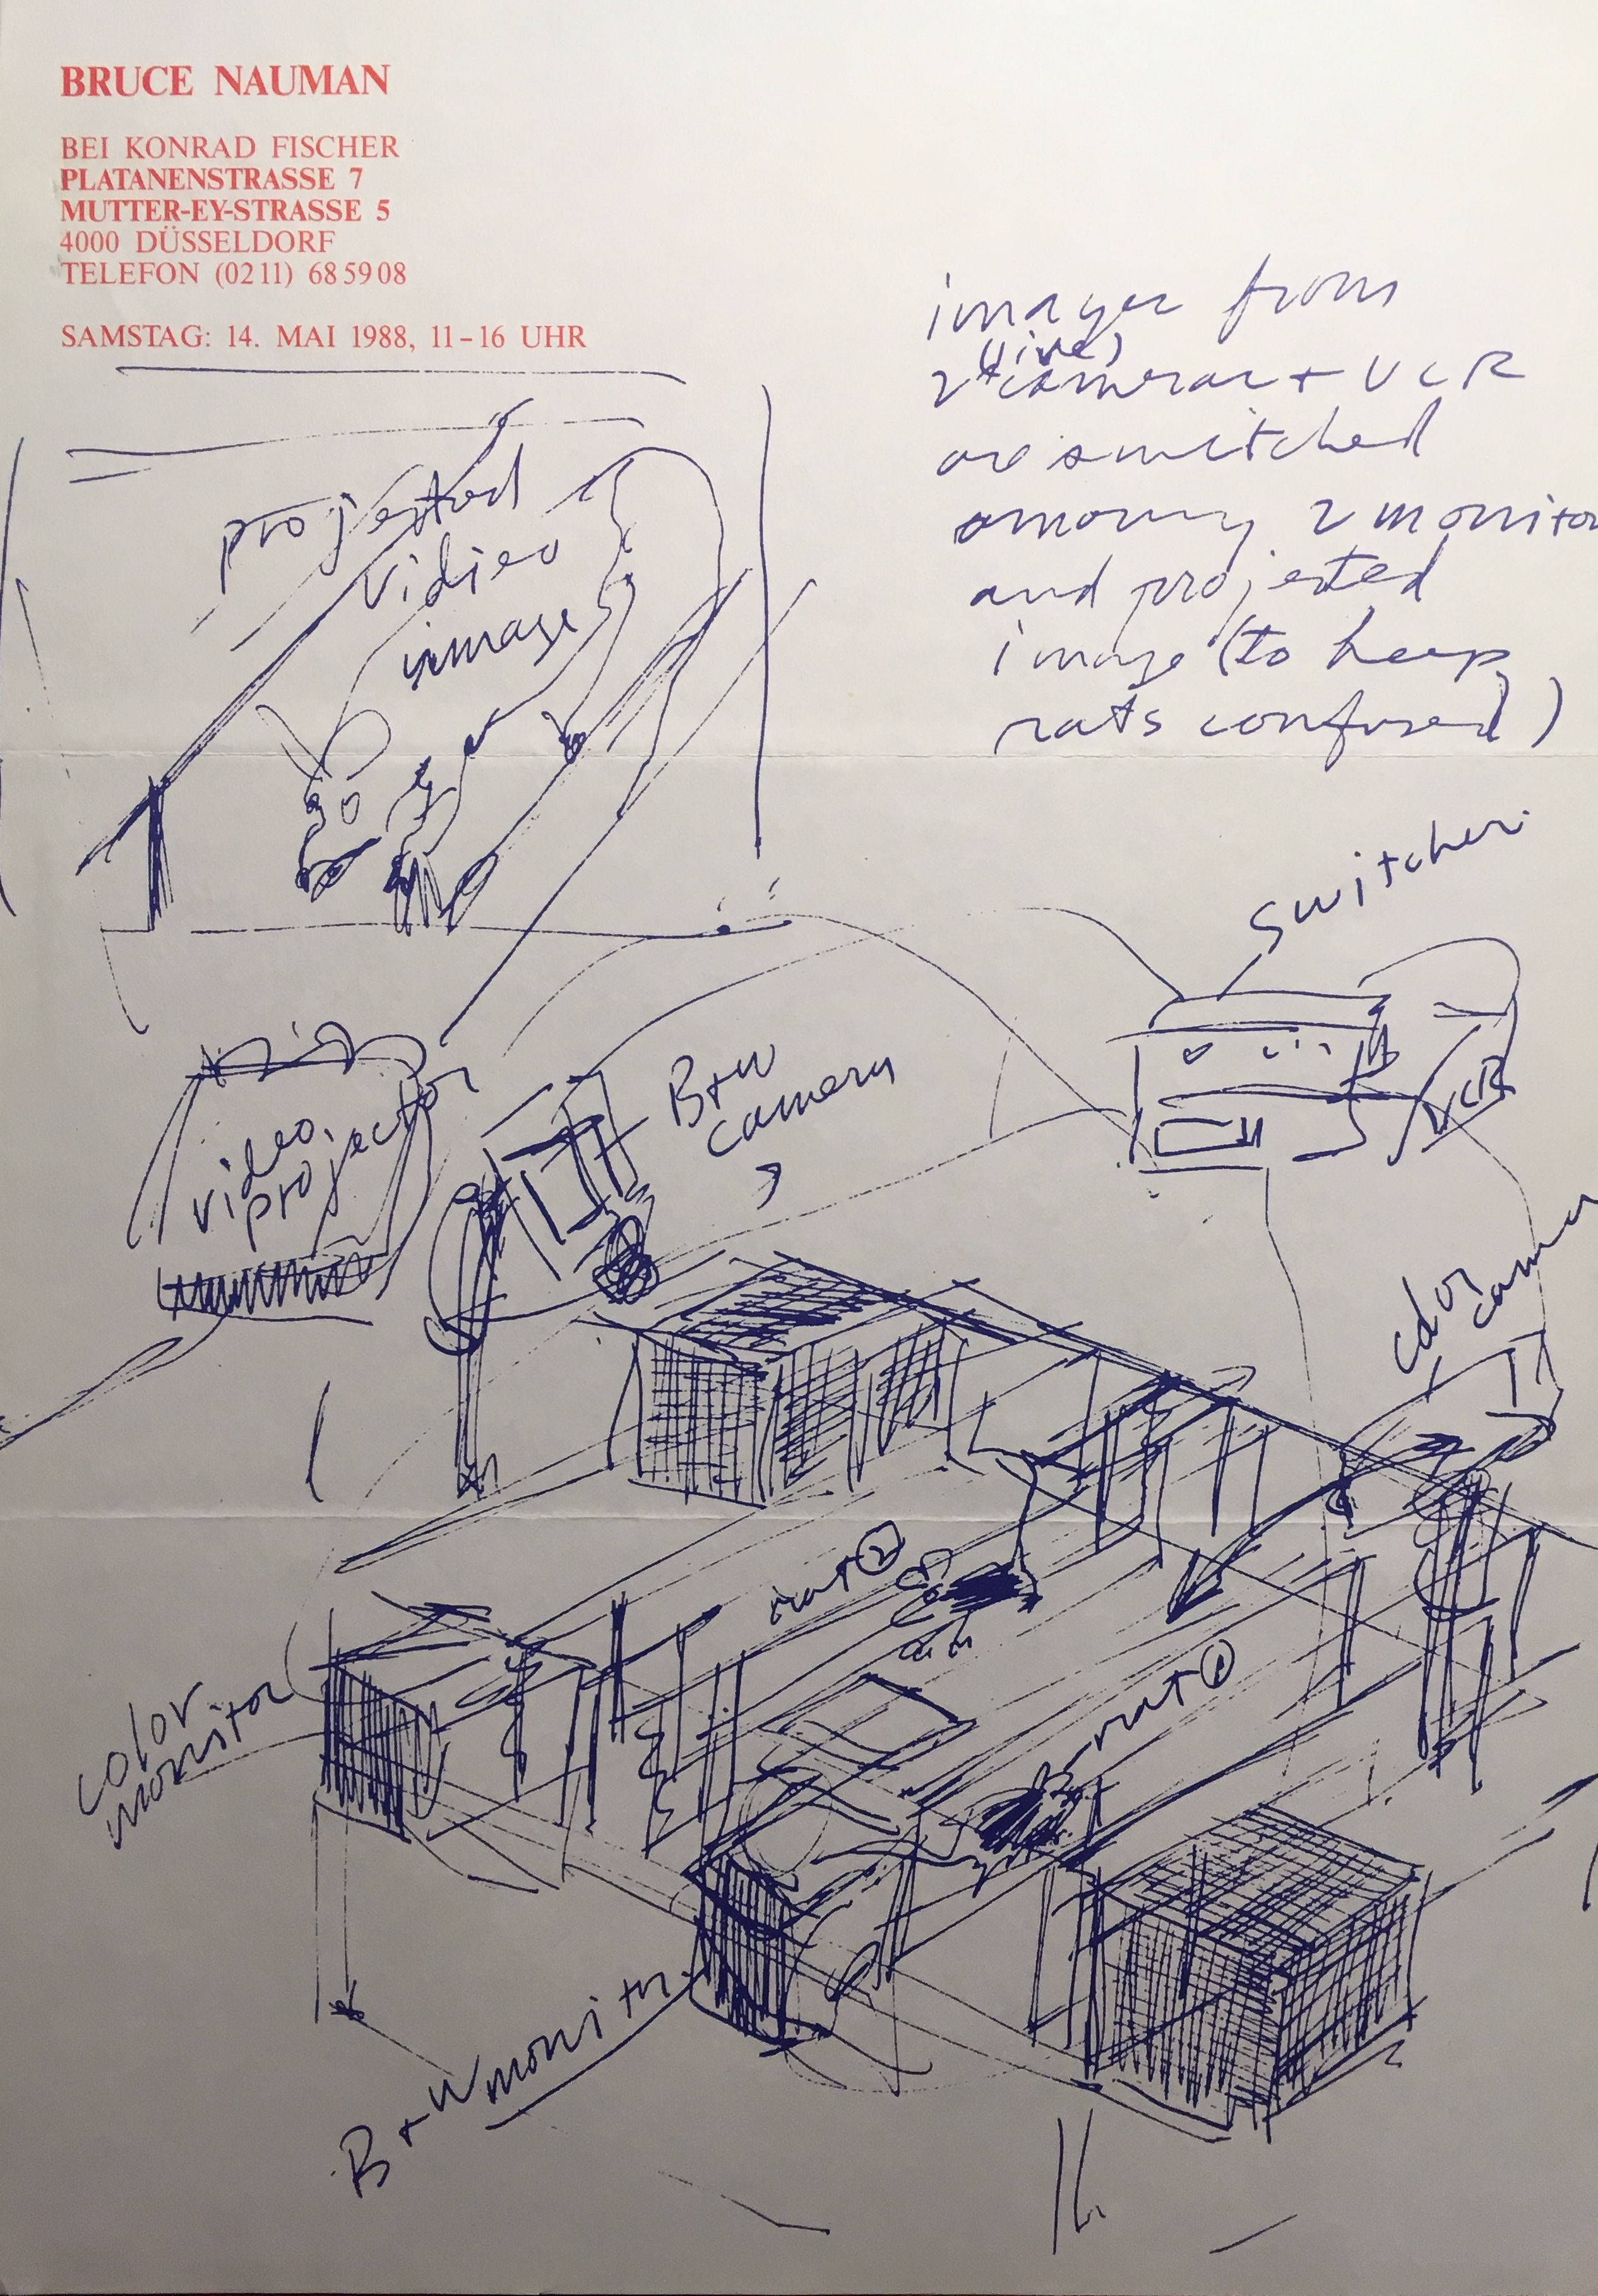 BRUCE NAUMAN
BEI KONRAD FISCHER
PLATANENSTRASSE 7
MUTTER-EY-STRASSE 5
4000 DÜSSELDORF
TELEFON (0211) 685908
SAMSTAG: 14. MAI 1988, 11-16 UHR
images from
(live)
2 cameras + VCR
are switched
among 2 monitor
and projected
image (to keep
rats confused)
projected
vidieo
image
switcher
VCR
B+W
camera
video
projector
color
camera
rat ②
rat ①
color
monitor
B+W monitor